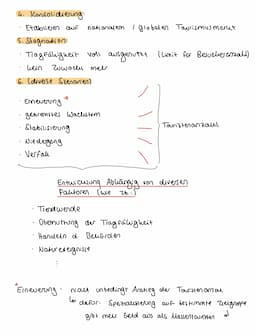 4. Konsolidierung
• Etablieren auf nationalen / globalen Tourismusmarkt
5. Stagnation
• Tragfähigkeit voll ausgenutzt (Limit für Besucheranzahl)
• kein Zuwachs mehr
6. (diverse Szenarien)
• Erneuerung *
• gebremstes Wachstum
• Stabilisierung
• Niedergang
• Verfall
Touristenanzahl
Entwicklung Abhängig von diversen
Faktoren (wie zB:)
• Trendwende
• Übernutzung der Tragfähigkeit
• Handeln d. Behörden
• Naturereignisse
* Erneuerung - nicht unbedingt Anstieg der Touristenanzahl
↳ dafür: Spezialisierung auf bestimmte Zielgruppe
gibt mehr Geld aus als Massentourist